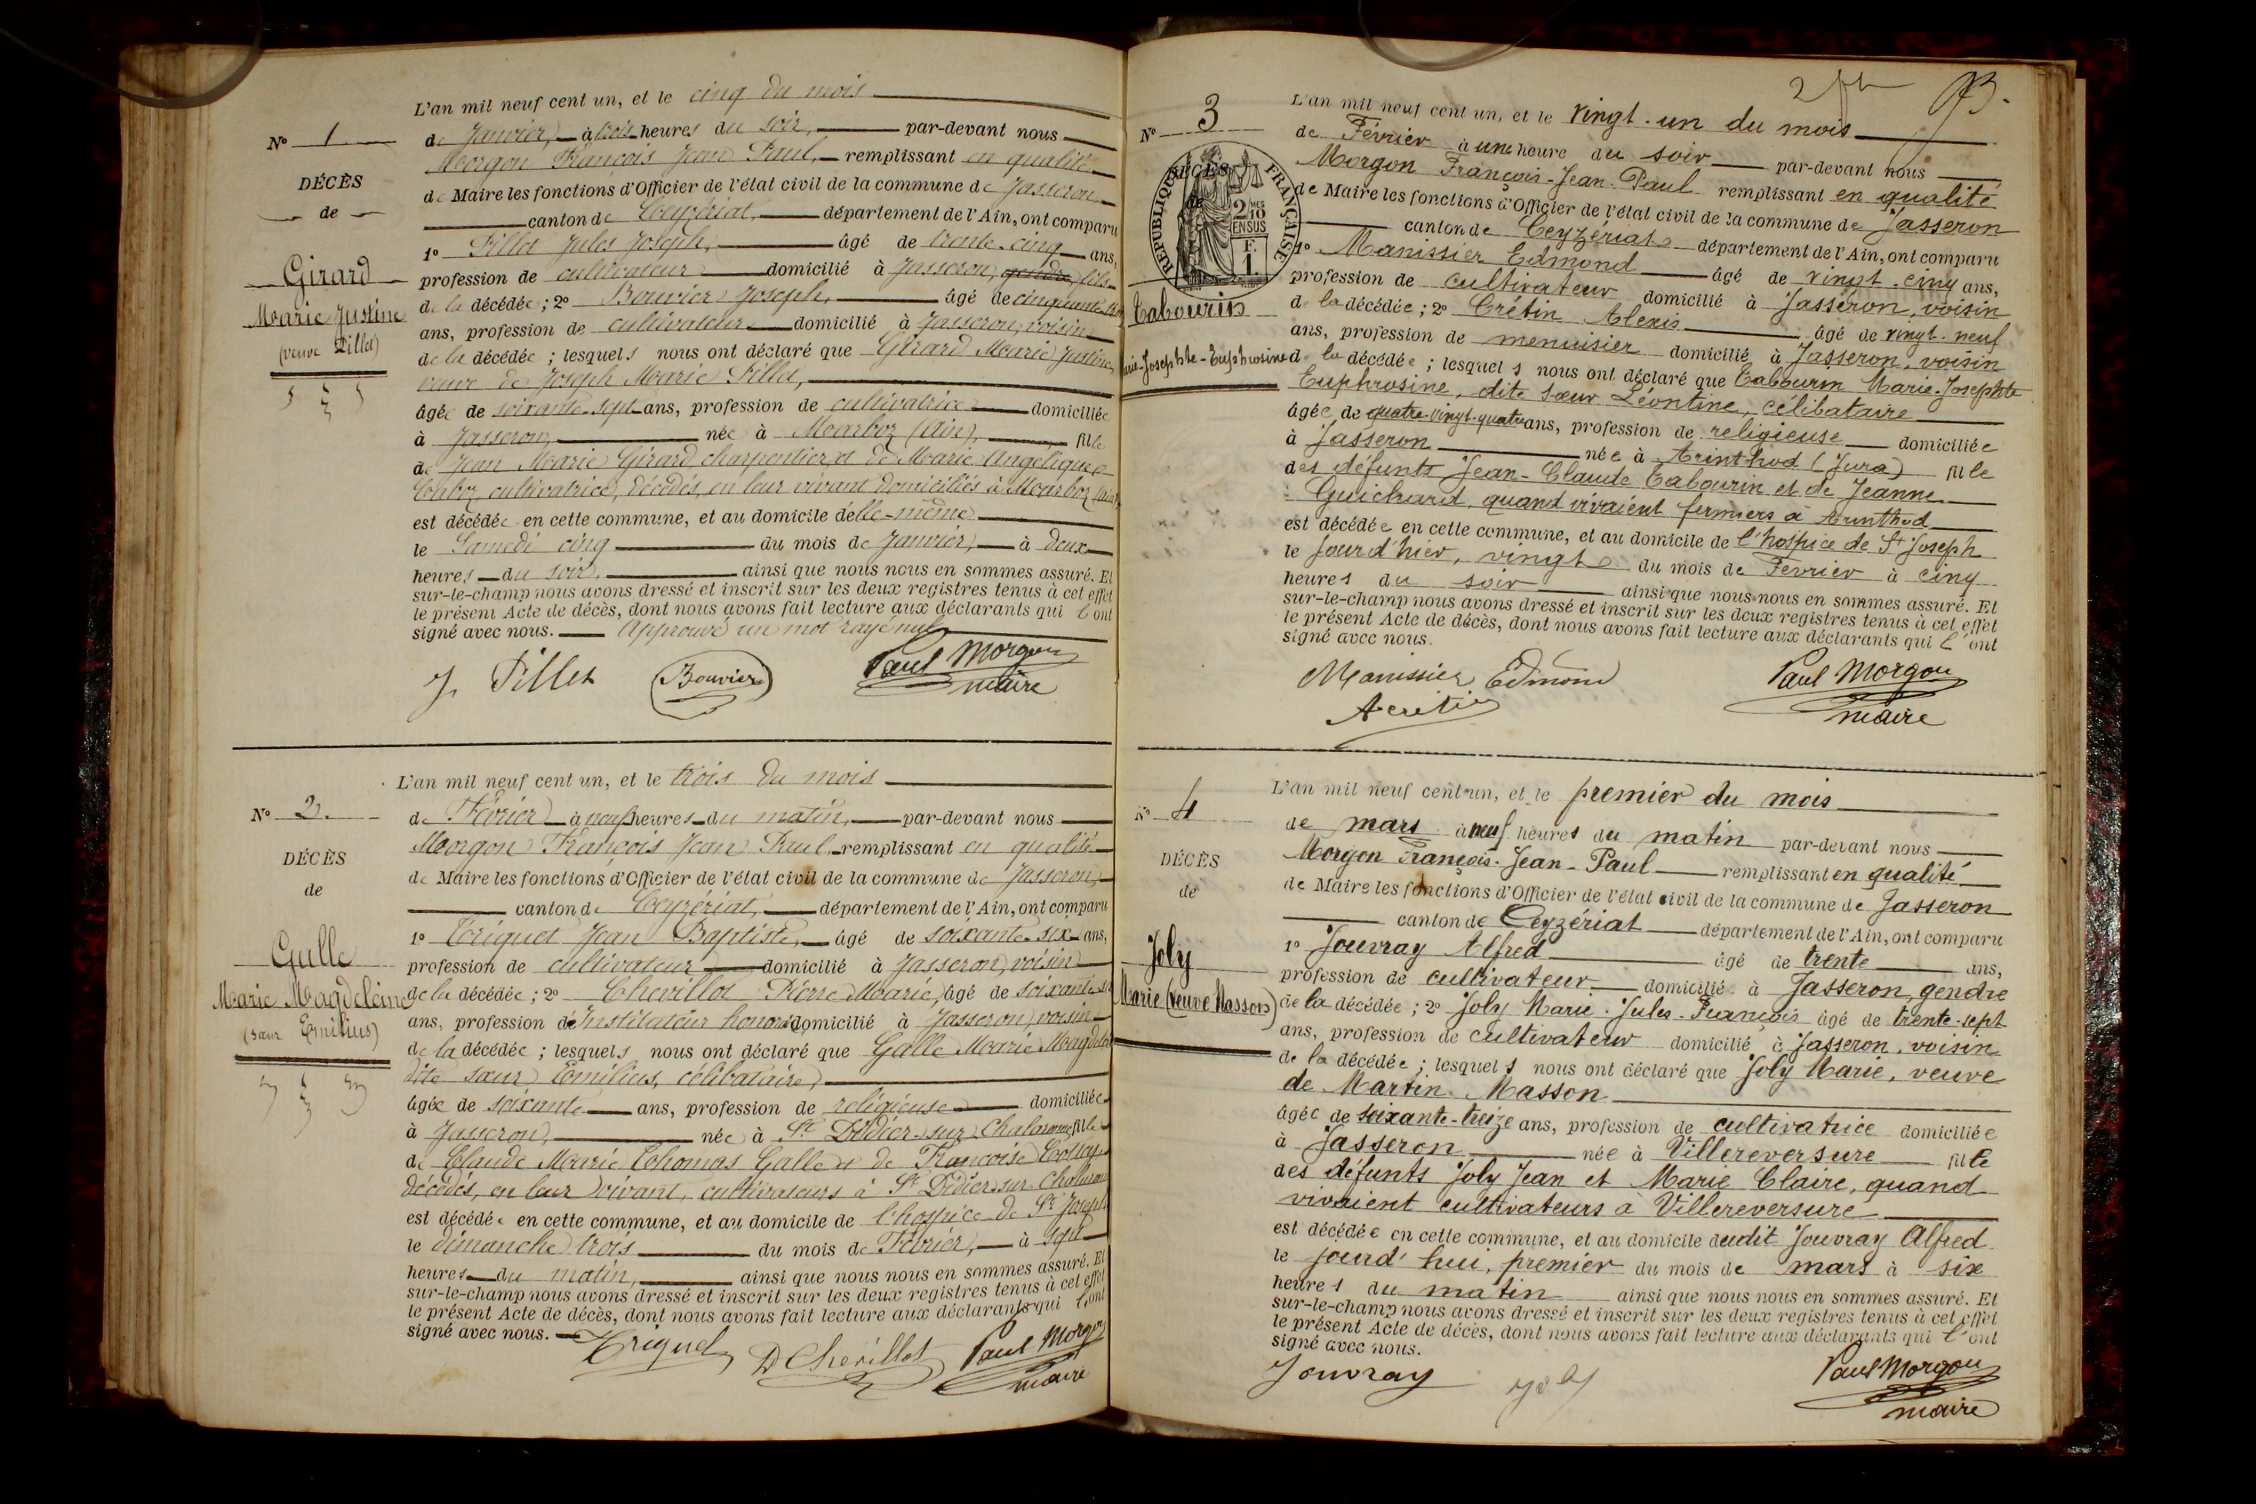 L'an mil neuf cent un, et le cinq du mois
N° 1
de Janvier, à trois heures du soir, par-devant nous
Morgon François Jean Paul, remplissant en qualité
DÉCÈS
de Maire les fonctions d'Officier de l'état civil de la commune de Jasseron
de
canton de Ceyzériat, département de l'Ain, ont comparu
1° Pillet Jules Joseph, âgé de trente-cinq ans,
Girard
profession de cultivateur domicilié à Jasseron, gendre, fils
Marie Justine
de la décédée ; 2° Bouvier Joseph, âgé de cinquante
(veuve Pillet)
ans, profession de cultivateur domicilié à Jasseron, voisin
de la décédée ; lesquels nous ont déclaré que Girard Marie Justine,
veuve de Joseph Marie Pillet,
âgée de soixante-sept ans, profession de cultivatrice domiciliée
à Jasseron, née à Marboz (Ain), fille
de Jean Marie Girard charpentier, et de Marie Angélique
cultivatrice, décédés, en leur vivant domiciliés à Marboz (Ain)
est décédée en cette commune, et au domicile d'elle-même
le Samedi cinq du mois de Janvier, à deux
heures du soir, ainsi que nous nous en sommes assuré. Et
sur-le-champ nous avons dressé et inscrit sur les deux registres tenus à cet effet
le présent Acte de décès, dont nous avons fait lecture aux déclarants qui l'ont
signé avec nous. Approuvé un mot rayé nul
J. Pillet Bouvier Paul Morgon
maire
L'an mil neuf cent un, et le trois du mois
N° 2
de Février à neuf heures du matin, par-devant nous
Morgon François Jean Paul, remplissant en qualité
DÉCÈS
de Maire les fonctions d'Officier de l'état civil de la commune de Jasseron,
de
canton de Ceyzériat, département de l'Ain, ont comparu
1° Triquet Jean Baptiste, âgé de soixante-six ans,
Gulle
profession de cultivateur domicilié à Jasseron, voisin
Marie Magdeleine
de la décédée ; 2° Chevillot Pierre Marie, âgé de soixante
(sœur Emilius)
ans, profession d'Instituteur honoraire domicilié à Jasseron, voisin
de la décédée ; lesquels nous ont déclaré que Galle Marie
dite sœur Emilius, célibataire,
âgée de soixante ans, profession de religieuse domiciliée
à Jasseron, née à St Didier-sur-Chalaronne, fille
de Claude Marie Thomas Galle et de Françoise
décédés, en leur vivant, cultivateurs à St Didier-sur
est décédée en cette commune, et au domicile de l'hospice de St Joseph
le dimanche trois du mois de Février, à sept
heures du matin, ainsi que nous nous en sommes assuré. Et
sur-le-champ nous avons dressé et inscrit sur les deux registres tenus à cet effet
le présent Acte de décès, dont nous avons fait lecture aux déclarants qui l'ont
signé avec nous.
Triquet Chevillot Paul Morgon
maire
L'an mil neuf cent un, et le vingt-un du mois
N° 3
de Février à une heure du soir par-devant nous
Morgon François-Jean-Paul remplissant en qualité
DÉCÈS
RÉPUBLIQUE FRANÇAISE
2/10
EN SUS
de Maire les fonctions d'Officier de l'état civil de la commune de Jasseron
canton de Ceyzériat département de l'Ain, ont comparu
1° Manissier Edmond âgé de vingt-cinq ans,
profession de cultivateur domicilié à Jasseron, voisin
Cabourin
de la décédée ; 2° Crétin Alexis âgé de vingt-neuf
ans, profession de menuisier domicilié à Jasseron, voisin
Marie-Josephte-Euphrosine
de la décédée ; lesquels nous ont déclaré que Cabourin Marie-Josephte
Euphrosine, dite sœur Léontine, célibataire
âgée de quatre-vingt-quatre ans, profession de religieuse domiciliée
à Jasseron née à Arinthod (Jura) fille
des défunts Jean-Claude Cabourin et de Jeanne
Guichard, quand vivaient fermiers à Arinthod
est décédée en cette commune, et au domicile de l'hospice de St Joseph
le jour d'hier, vingt du mois de Février à cinq
heures du soir ainsi que nous nous en sommes assuré. Et
sur-le-champ nous avons dressé et inscrit sur les deux registres tenus à cet effet
le présent Acte de décès, dont nous avons fait lecture aux déclarants qui l'ont
signé avec nous.
Manissier Edmond Paul Morgon
A cretin maire
L'an mil neuf cent un, et le premier du mois
N° 4
de mars à neuf heures du matin par-devant nous
Morgon François-Jean-Paul remplissant en qualité
DÉCÈS
de Maire les fonctions d'Officier de l'état civil de la commune de Jasseron
de
canton de Ceyzériat département de l'Ain, ont comparu
1° Jouvray Alfred âgé de trente ans,
Joly
profession de cultivateur domicilié à Jasseron, gendre
Marie (veuve Masson)
de la décédée ; 2° Joly Marie-Jules-François âgé de trente-sept
ans, profession de cultivateur domicilié à Jasseron, voisin
de la décédée ; lesquels nous ont déclaré que Joly Marie, veuve
de Martin Masson
âgée de soixante-treize ans, profession de cultivatrice domiciliée
à Jasseron née à Villereversure fille
des défunts Joly Jean et Marie Claire, quand
vivaient cultivateurs à Villereversure
est décédée en cette commune, et au domicile dudit Jouvray Alfred
le jourd'hui, premier du mois de mars à six
heures du matin ainsi que nous nous en sommes assuré. Et
sur-le-champ nous avons dressé et inscrit sur les deux registres tenus à cet effet
le présent Acte de décès, dont nous avons fait lecture aux déclarants qui l'ont
signé avec nous.
Jouvray Joly Paul Morgon
maire